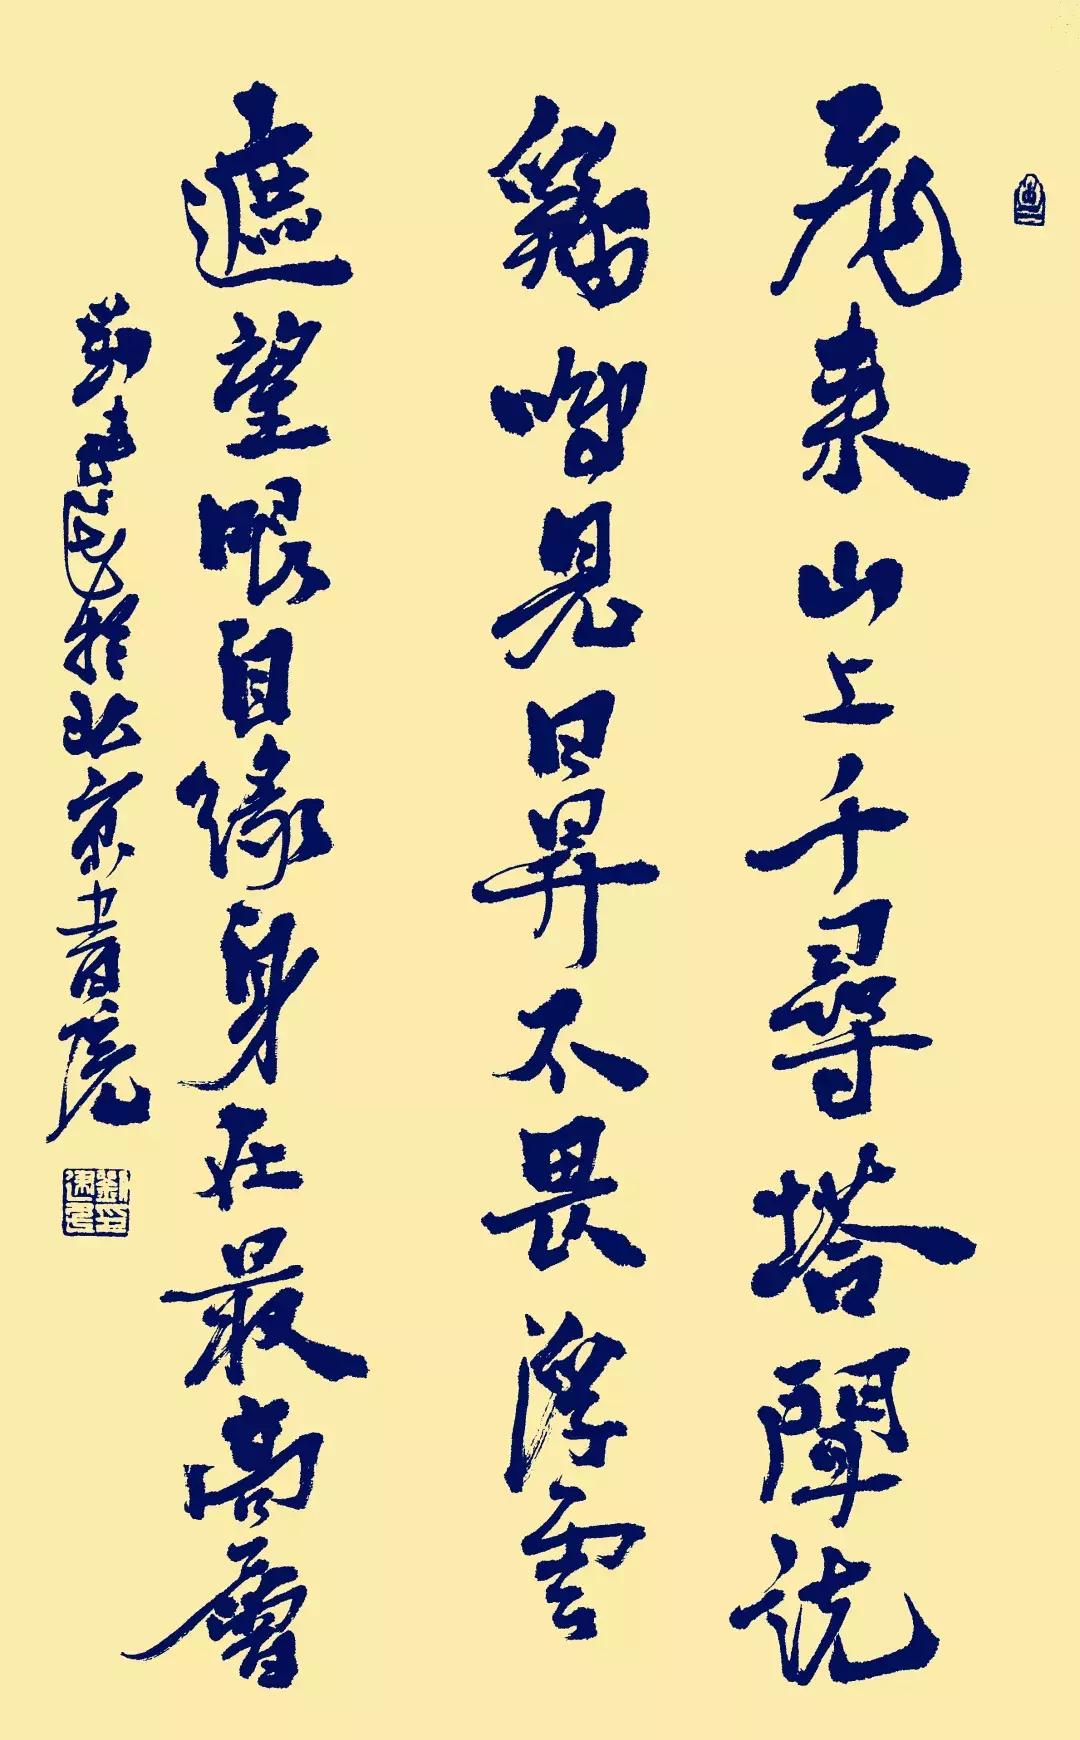 飛來山上千尋塔聞說
鷄鳴見日昇不畏浮雲
遮望眼自緣身在最高層
劉 於北京書院